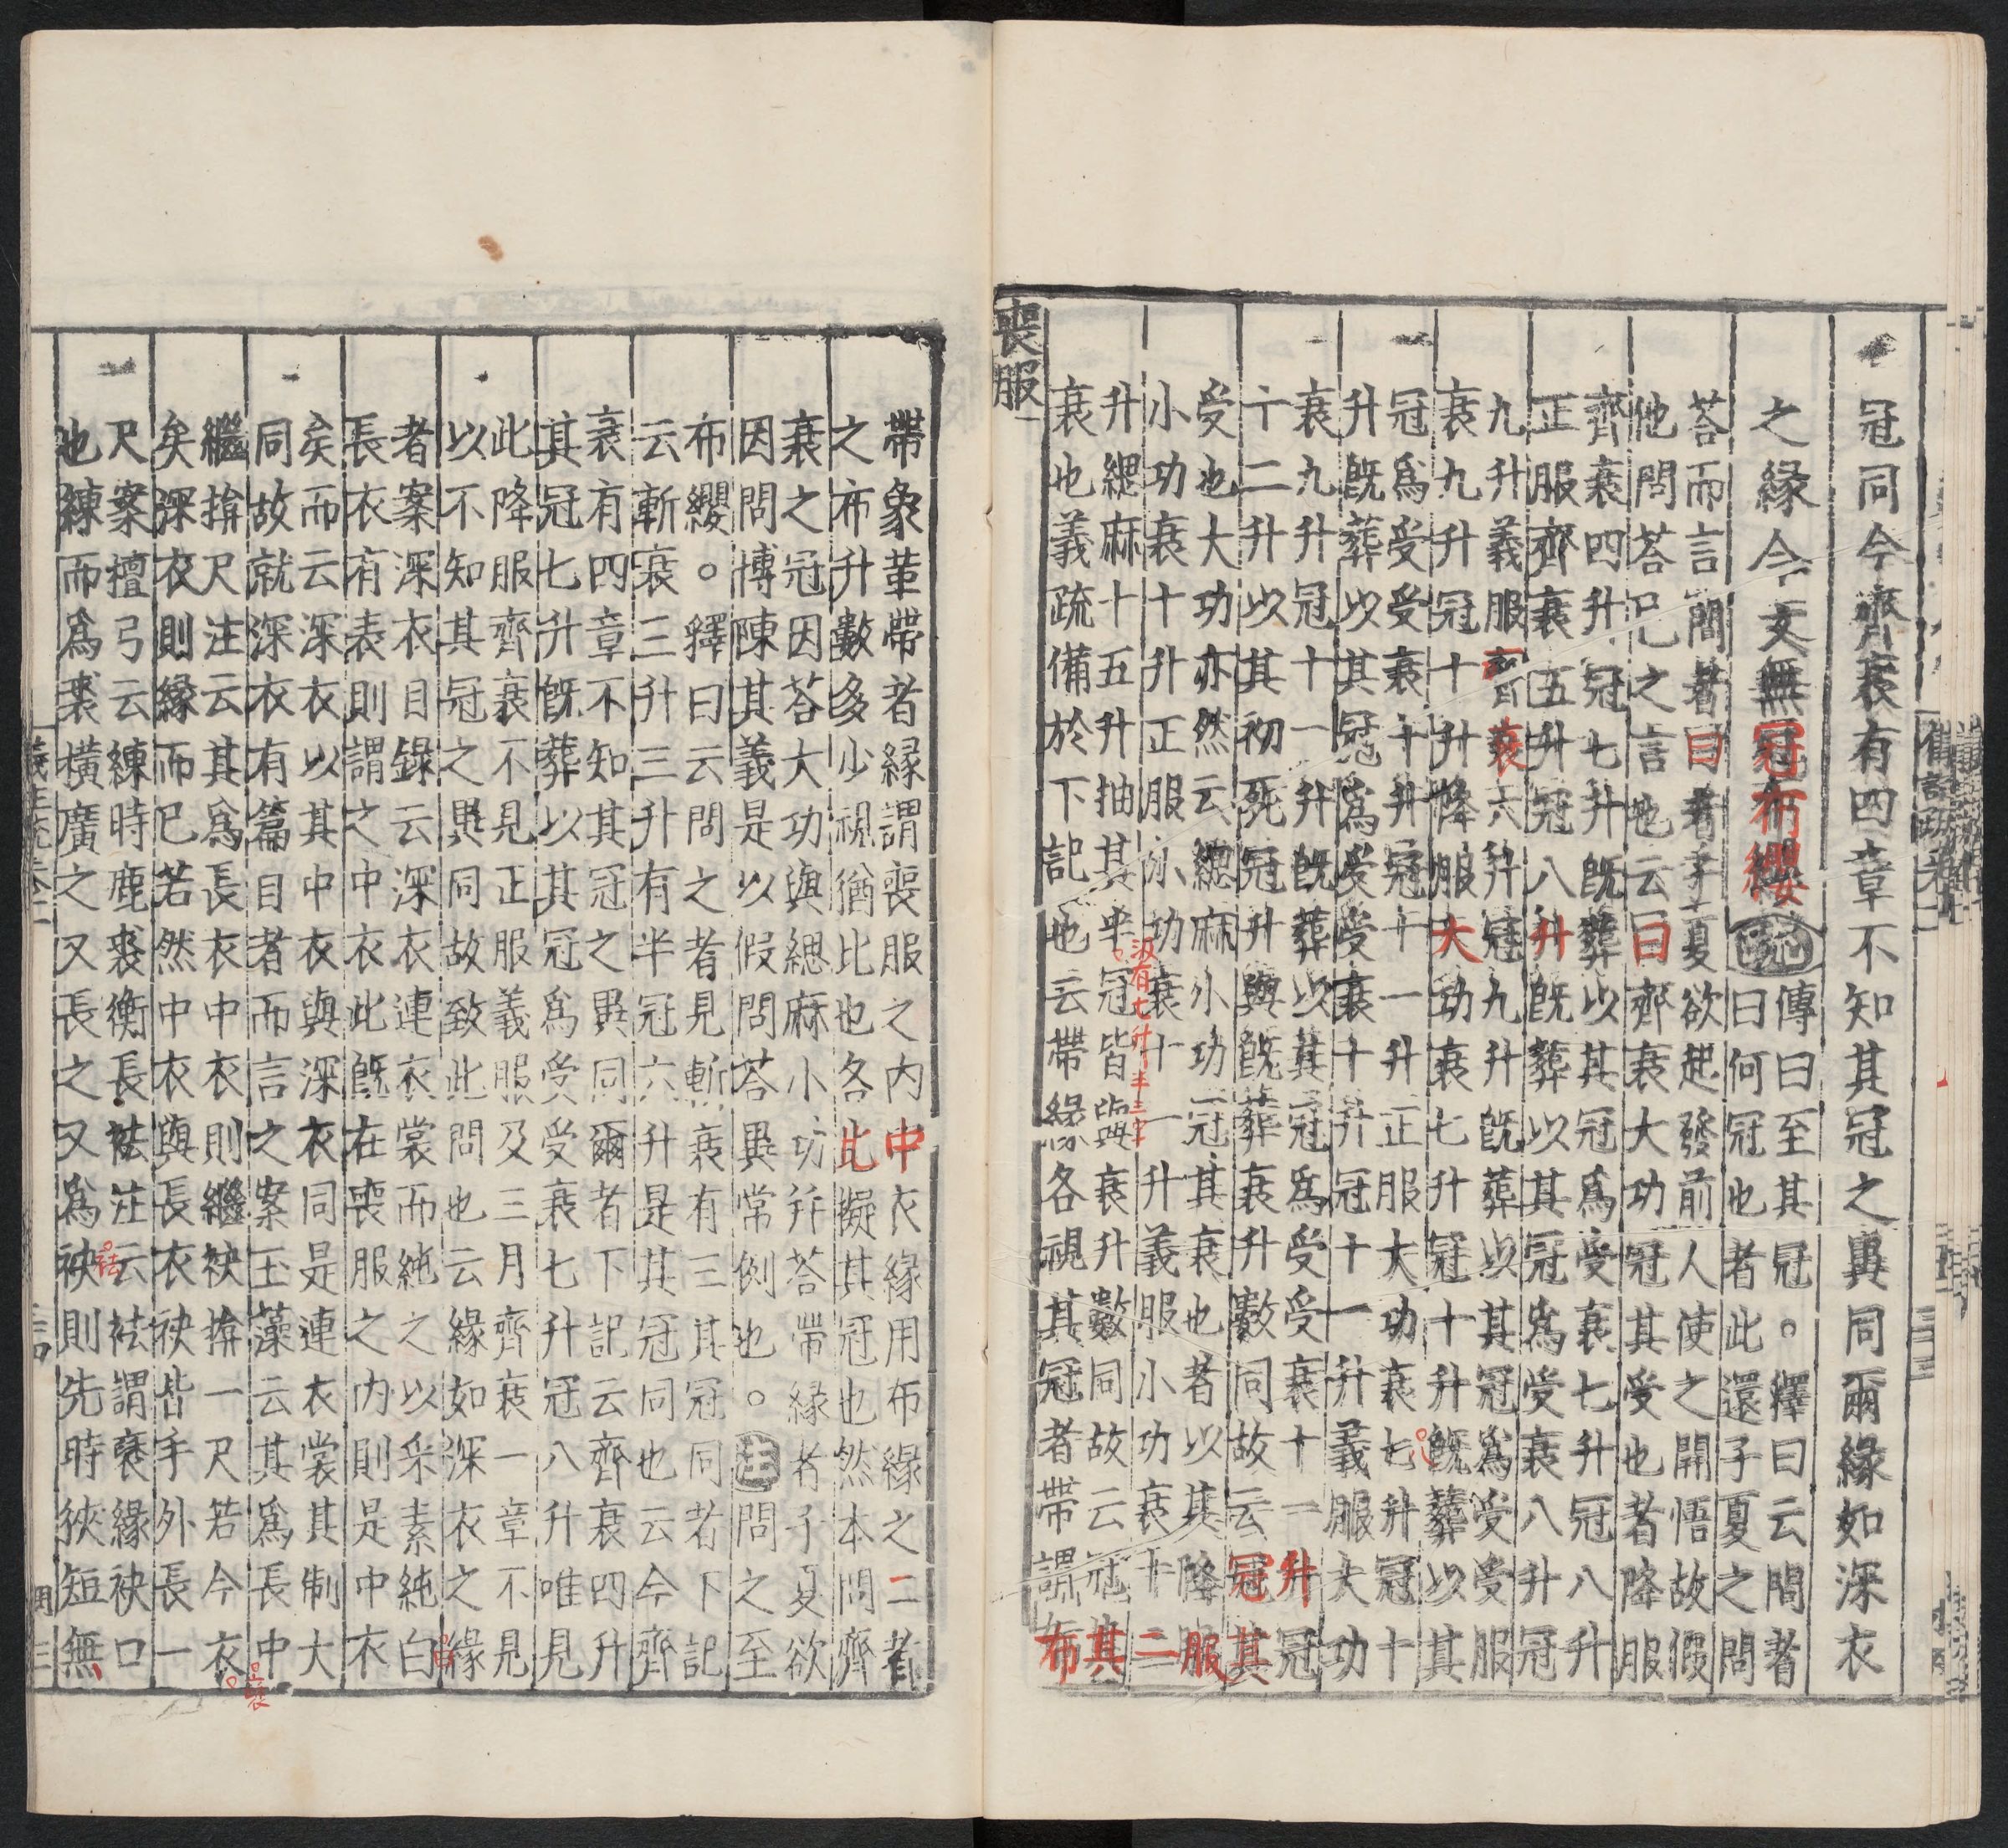 冠同今齊衰有四章不知其冠之異同爾緣如深衣
之緣今文無冠布纓疏傳曰至其冠。釋曰云問者
曰何冠也者此還子夏之問
荅而言問者曰者子夏欲起發前人使之開悟故假
他問荅己之言也云曰齊衰大功冠其受也者降服
齊衰四升冠七升既葬以其冠爲受衰七升冠八升
正服齊衰五升冠八升既葬以其冠爲受衰八升冠
九升義服齊衰六升冠九升既葬以其冠爲受受服
衰九升冠十升降服大功衰七升冠十升既葬以其
冠爲受受衰十升冠十一升正服大功衰七升冠十
升既葬以其冠爲受受衰十升冠十一升義服大功
衰九升冠十一升既葬以其冠爲受受衰十一升冠
十二升以其初死冠升與既葬衰升數同故云冠其
受也大功亦然云緦麻小功冠其衰也者以其降服
小功衰十升正服小功衰十一升義服小功衰十二
升緦麻十五升抽其半冠皆與衰升數同故云冠其
衰也義疏備於下記也云帶緣各視其冠者帶謂布
喪服一
帶象革帶者緣謂喪服之內中衣緣用布緣之二者
之布升數多少視猶比也各比擬其冠也然本問齊
衰之冠因荅大功與緦麻小功并荅帶緣者子夏欲
因問博陳其義是以假問荅異常例也。注問之至
布纓。釋曰云問之者見斬衰有三其冠同若下記
云斬衰三升三升有半冠六升是其冠同也云今齊
衰有四章不知其冠之異同爾者下記云齊衰四升
其冠七升既葬以其冠爲受受衰七升冠八升唯見
此降服齊衰不見正服義服及三月齊衰一章不見
以不知其冠之異同故致此問也云緣如深衣之緣
者案深衣目錄云深衣連衣裳而純之以采素純白
長衣有表則謂之中衣此既在喪服之內則是中衣
矣而云深衣以其中衣與深衣同是連衣裳其制大
同故就深衣有篇目者而言之案玉藻云其爲長中
繼揜尺注云其爲長衣中衣則繼袂揜一尺若今衣
矣深衣則緣而已若然中衣與長衣袂皆手外長一
尺案檀弓云練時鹿裘衡長袪注云袪謂褎緣袂口
也練而爲裘橫廣之又長之又爲袂則先時狹短無